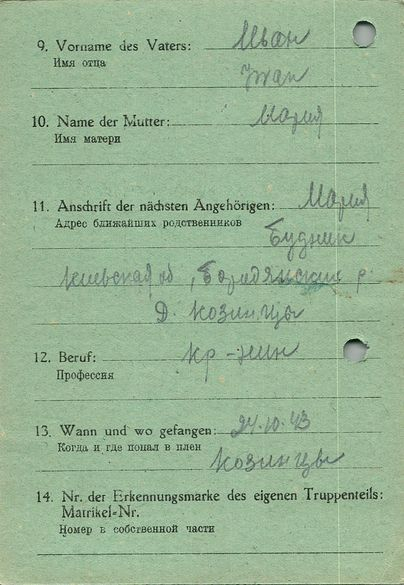 9. Vorname des Vaters: Иван
Имя отца Iwan
10. Name der Mutter: Мария
Имя матери
11. Anschrift der nächsten Angehörigen: Мария
Адрес ближайших родственников Будник
Киевская об, Бородянский р.
Д. Козинцы
12. Beruf: кр-нин
Профессия
13. Wann und wo gefangen: 24.10.43
Когда и где попал в плен
Козинцы
14. Nr. der Erkennungsmarke des eigenen Truppenteils:
Matrikel-Nr.
Номер в собственной части